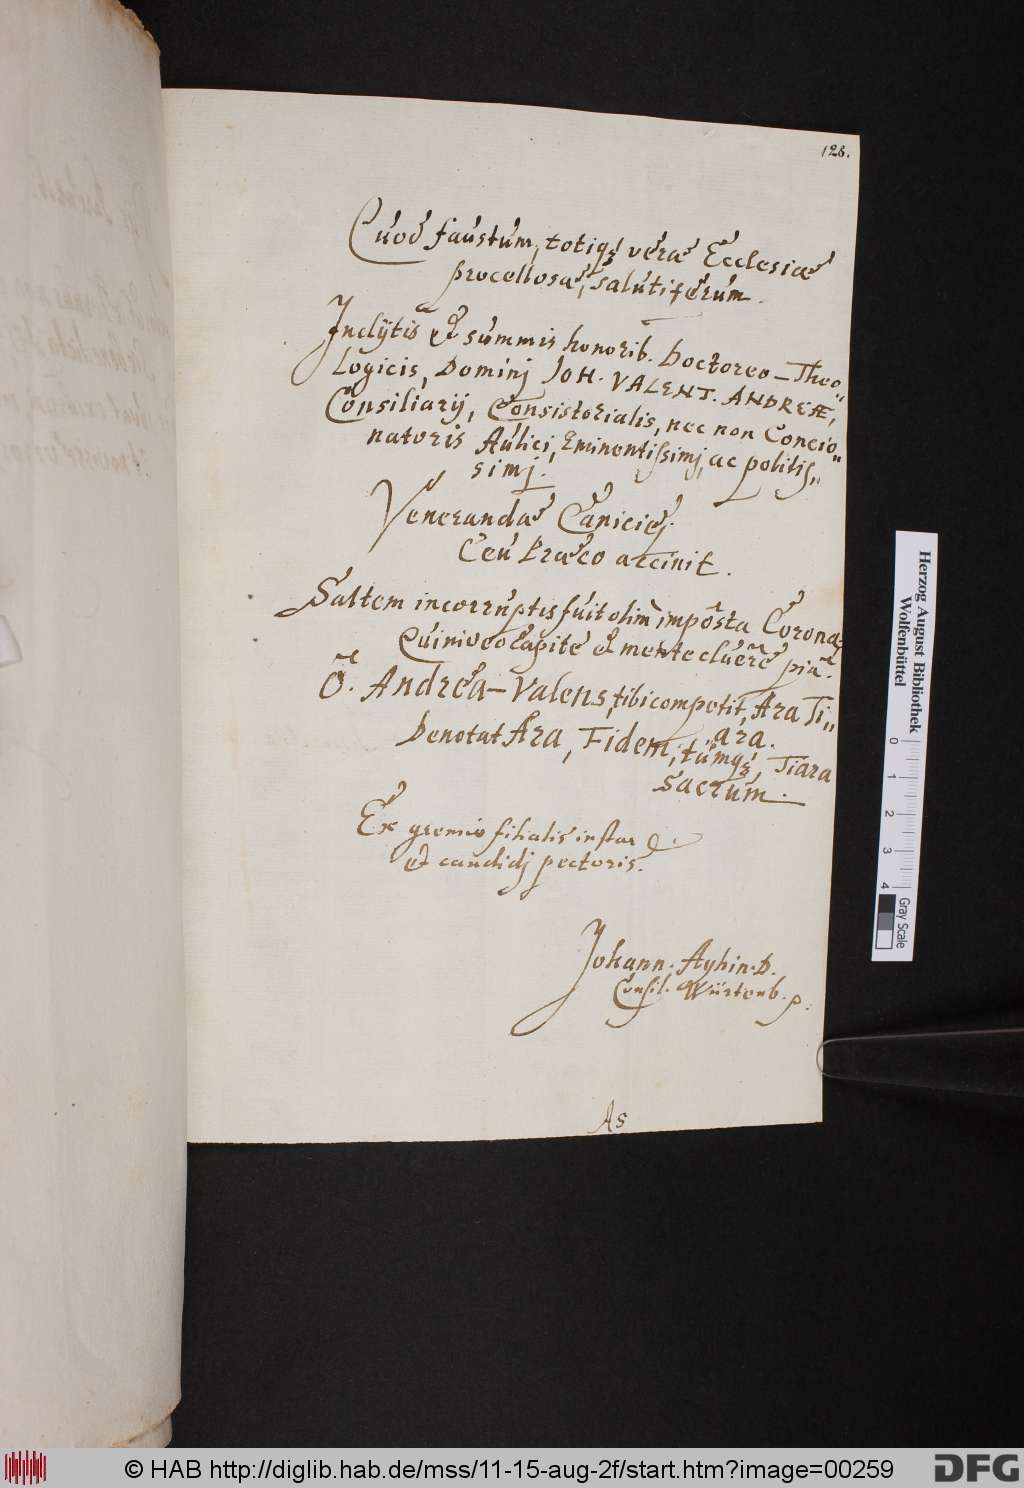 128.
Quod faustum, totiq; verae Ecclesiae
procellosae, salutiferum.
Inclÿtis et summis honorib. Doctoreo-Theo„
logicis, Dominj JOH. VALENT. ANDREÆ,
Consiliarij, Consistorialis, nec non Concio„
natoris Aulici, Eminentissimj, ac politis„
simj.
Venerandae Caniciej
Ceu Praeco accinit.
Saltem incorruptis fuit olim impôsta Corona,
Cui niveo Capite et mente cluere piâ.
Õ. Andrea-Valens, tibi competit, Ara Ti„
ara.
Denotat Ara, Fidem, tumq;, Tiara
sacrum.
Ex gremio filialis instar
et candidj pectoris.
Johann. Ayhin. D.
Consil. Würtenb. p.
As
Herzog August Bibliothek
Wolfenbüttel
0
1
2
3
4
Gray Scale
© HAB http://diglib.hab.de/mss/11-15-aug-2f/start.htm?image=00259
DFG